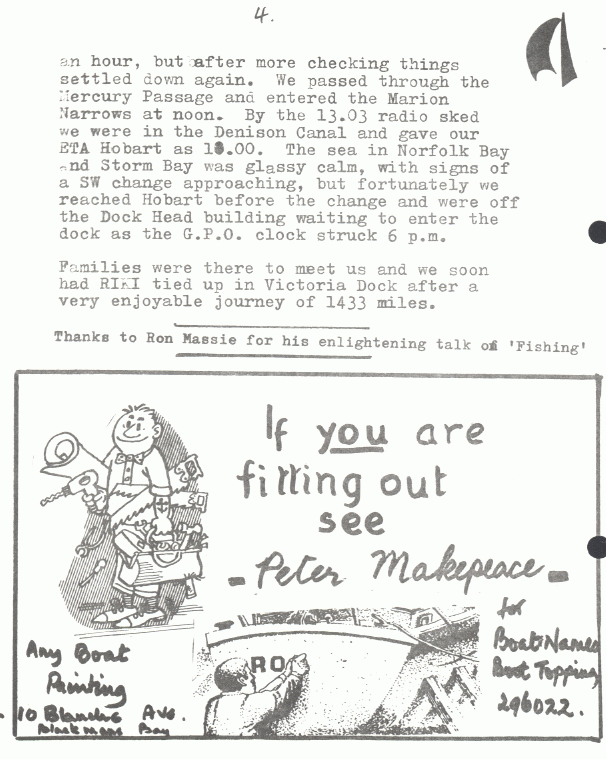 4.
an hour, but after more checking things
settled down again. We passed through the
Mercury Passage and entered the Marion
Narrows at noon. By the 13.03 radio sked
we were in the Denison Canal and gave our
ETA Hobart as 18.00. The sea in Norfolk Bay
and Storm Bay was glassy calm, with signs of
a SW change approaching, but fortunately we
reached Hobart before the change and were off
the Dock Head building waiting to enter the
dock as the G.P.O. clock struck 6 p.m.
Families were there to meet us and we soon
had RIKI tied up in Victoria Dock after a
very enjoyable journey of 1433 miles.
Thanks to Ron Massie for his enlightening talk on 'Fishing'
If you are
fitting out
see
- Peter Makepeace -
for
Boat Names
Boot Topping
296022.
RO
Any Boat
Painting
10 Blanche Ave.
Blackmans Bay